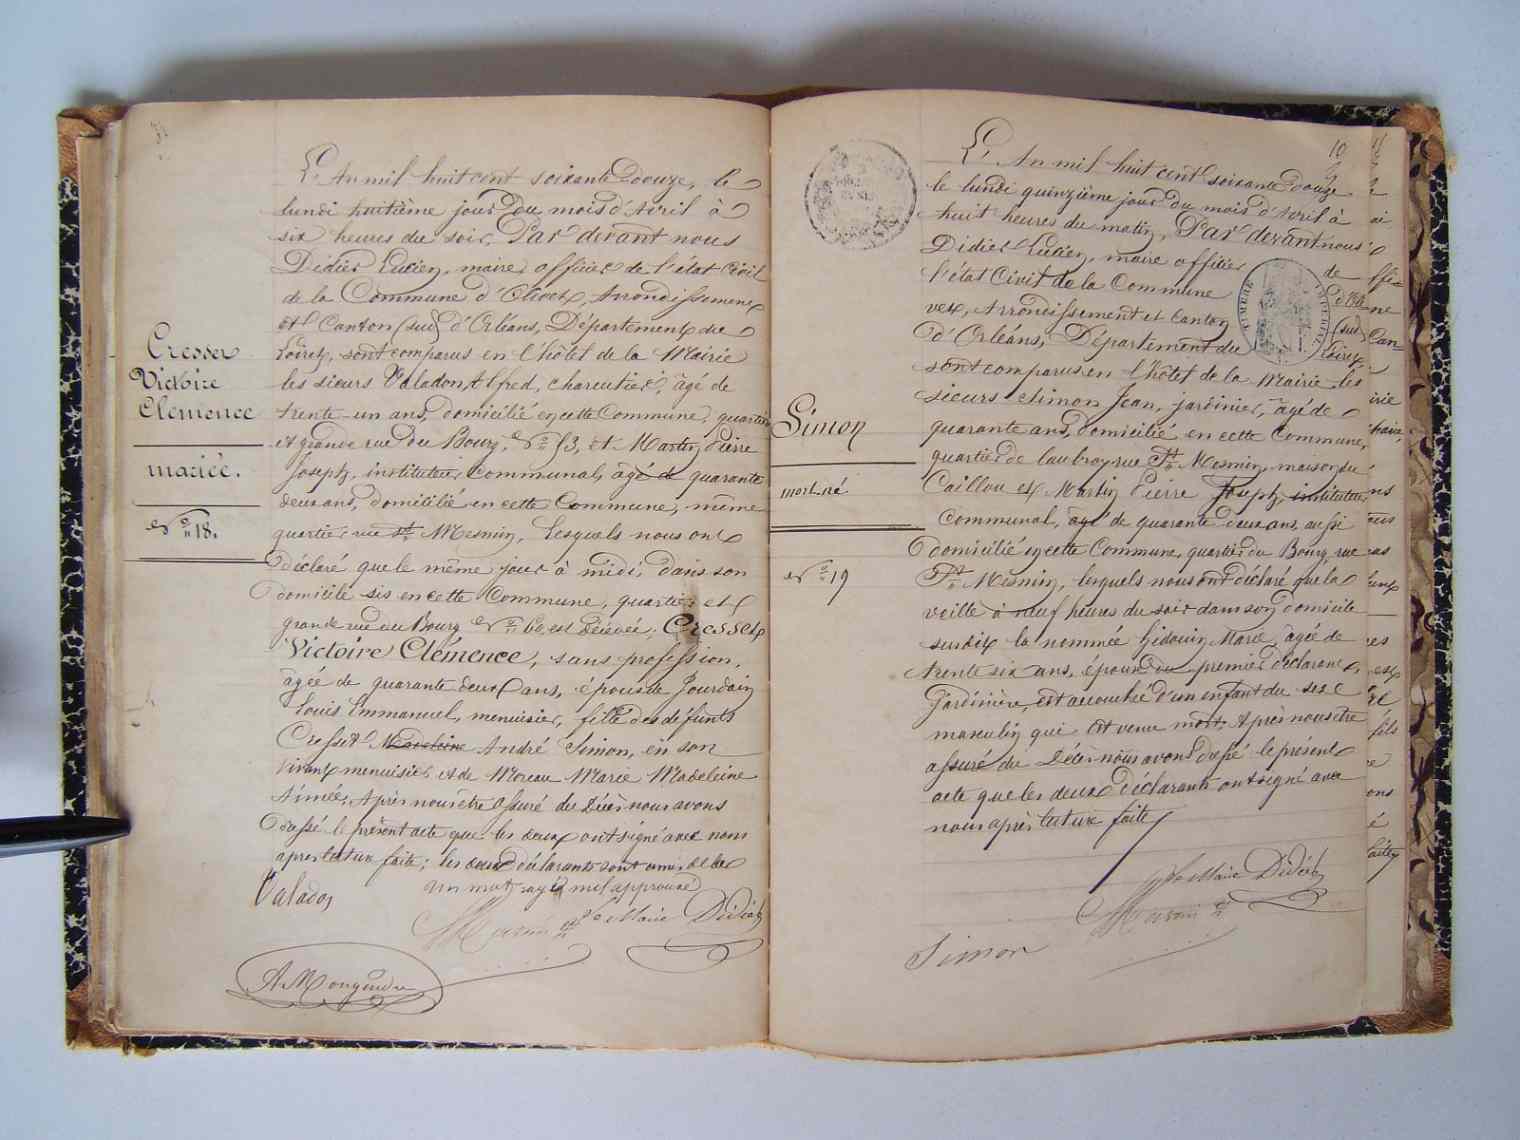 Cresset
Victoire
Clémence
mariée.
N° 18.
L'An mil huit cent soixante douze, le
lundi huitième jour du mois d'Avril à
six heures du soir, Par devant nous
Didier Lucien, maire officier de l'état civil
de la Commune d'Olivet, Arrondissement
et Canton (sud) d'Orléans, Département du
Loiret, sont comparus en l'hôtel de la Mairie
les sieurs Valadon Alfred, charcutier, âgé de
trente un ans, domicilié en cette Commune, quartier
et grande rue du Bourg, N° 53, et Martin Pierre
Joseph, instituteur communal, âgé de quarante
deux ans, domicilié en cette Commune, même
quartier rue St Mesmin, lesquels nous ont
déclaré que le même jour à midi, dans son
domicile sis en cette Commune, quartier et
grande rue du Bourg N° 60, est décédée, Cresset
Victoire Clémence, sans profession,
âgée de quarante deux ans, épouse de Jourdain
Louis Emmanuel, menuisier, fille des défunts
Cresset Madeleine André Simon, en son
vivant menuisier et de Moreau Marie Madeleine
Aimée, Après nous être assuré du Décès nous avons
dressé le présent acte que les deux ont signé avec nous
après lecture faite; les deux déclarants sont amis de la
un mot rayé nul approuvé
Valadon
le Maire Didier
A Mongendre
10
L'An mil huit cent soixante douze
le lundi quinzième jour du mois d'Avril à
huit heures du matin, Par devant nous
Didier Lucien, maire officier de
l'état Civil de la Commune d'Oli
vet, Arrondissement et Canton (sud
d'Orléans, Département du Loiret,
sont comparus en l'hôtel de la Mairie les
sieurs Simon Jean, jardinier, âgé de
quarante ans, domicilié en cette Commune,
quartier de Caubray rue St Mesmin, maison du
Caillou et Martin Pierre Joseph, instituteur
communal, âgé de quarante deux ans, aussi
domicilié en cette Commune, quartier du Bourg, rue
St Mesmin, lesquels nous ont déclaré que la
veille à neuf heures du soir dans son domicile
susdit la nommée Gidouin Marie, âgée de
trente six ans, épouse du premier déclarant,
jardinière, est accouchée d'un enfant du sexe
masculin qui est venu mort. Après nous être
assuré du Décès nous avons dressé le présent
acte que les deux déclarants ont signé avec
nous après lecture faite
Simon
mort-né
N° 19
le Maire Didier
Simon